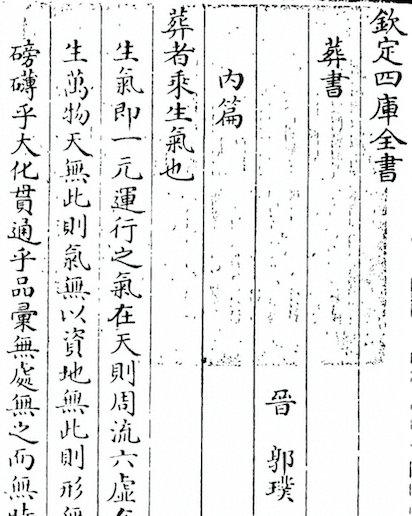 欽定四庫全書
葬書
晉 郭璞
內篇
葬者乘生氣也
生氣即一元運行之氣在天則周流六虛
生萬物天無此則氣無以資地無此則形無
磅礴乎大化貫通乎品彙無處無之而無